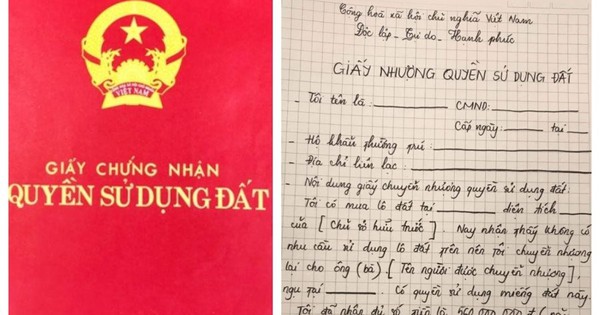 VIỆT NAM
GIẤY CHỨNG NHẬN
QUYỀN SỬ DỤNG ĐẤT
Cộng hoà xã hội chủ nghĩa Việt Nam
Độc lập - Tự do - Hạnh phúc
GIẤY NHƯỢNG QUYỀN SỬ DỤNG ĐẤT
- Tôi tên là: CMND:
Cấp ngày: tại
- Hộ khẩu thường trú:
- Địa chỉ liên lạc:
- Nội dung giấy chuyển nhượng quyền sử dụng đất:
Tôi có mua lô đất tại diện tích
của [Chủ sở hữu trước]. Nay nhận thấy không có
nhu cầu sử dụng lô đất trên nên tôi chuyển nhượng
lại cho ông (bà) [Tên người được chuyển nhượng],
ngụ tại Có quyền sử dụng miếng đất này.
Tôi đã nhận đủ số tiền là 560.000.000 đ